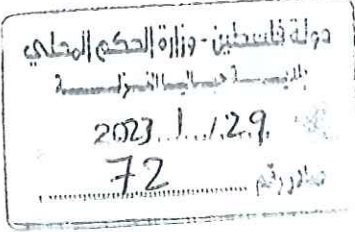 دولة فلسطين - وزارة الحكم المحلي
بلديـــــة
2023.../.1.../.29.
صادر رقم 72